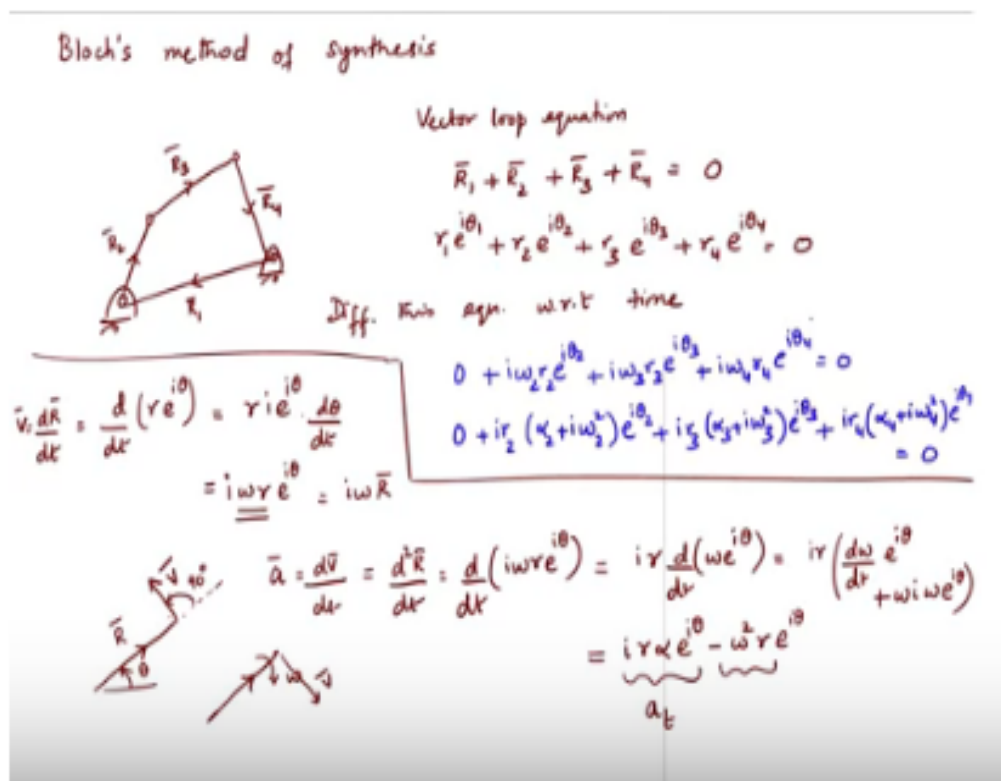 Bloch's method of synthesis
Vector loop equation
R̄₁ + R̄₂ + R̄₃ + R̄₄ = 0
r₁e^{iθ₁} + r₂e^{iθ₂} + r₃e^{iθ₃} + r₄e^{iθ₄} = 0
R̄₃
R̄₄
R̄₂
R₁
Diff. this eqn. w.r.t time
0 + iω₂r₂e^{iθ₂} + iω₃r₃e^{iθ₃} + iω₄r₄e^{iθ₄} = 0
0 + ir₂(α₂+iω₂²)e^{iθ₂} + ir₃(α₃+iω₃²)e^{iθ₃} + ir₄(α₄+iω₄²)e^{iθ₄}
= 0
v̄ = dR̄/dt = d/dt (re^{iθ}) = rie^{iθ} dθ/dt
= iωre^{iθ} = iωR̄
ā = dv̄/dt = d²R̄/dt = d/dt (iωre^{iθ}) = ir d/dt (ωe^{iθ}) = ir (dω/dt e^{iθ}
+ωiωe^{iθ})
= irαe^{iθ} - ω²re^{iθ}
a_t
v̄
90°
R̄
θ
ω
v̄